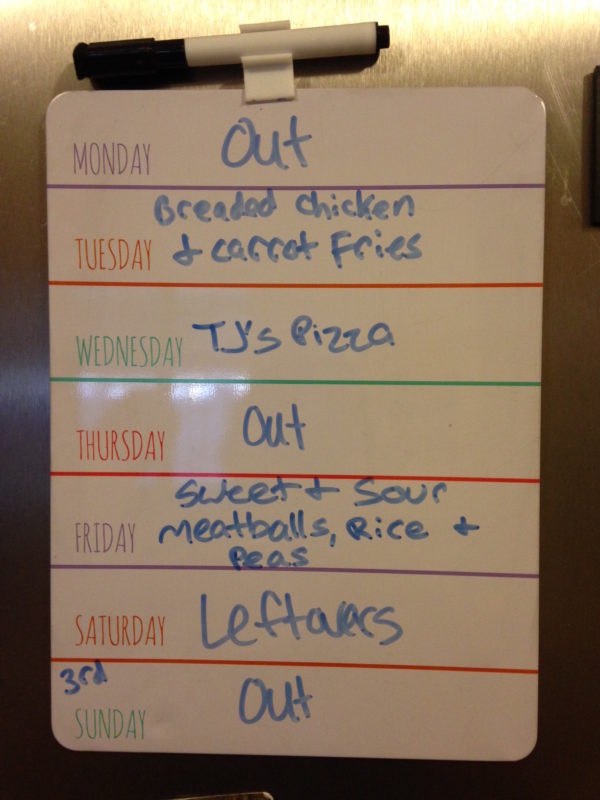 MONDAY Out
Breaded chicken
TUESDAY & carrot Fries
WEDNESDAY TJ's Pizza
THURSDAY Out
Sweet & Sour
FRIDAY meatballs, Rice &
Peas
SATURDAY Leftovers
3rd
SUNDAY Out